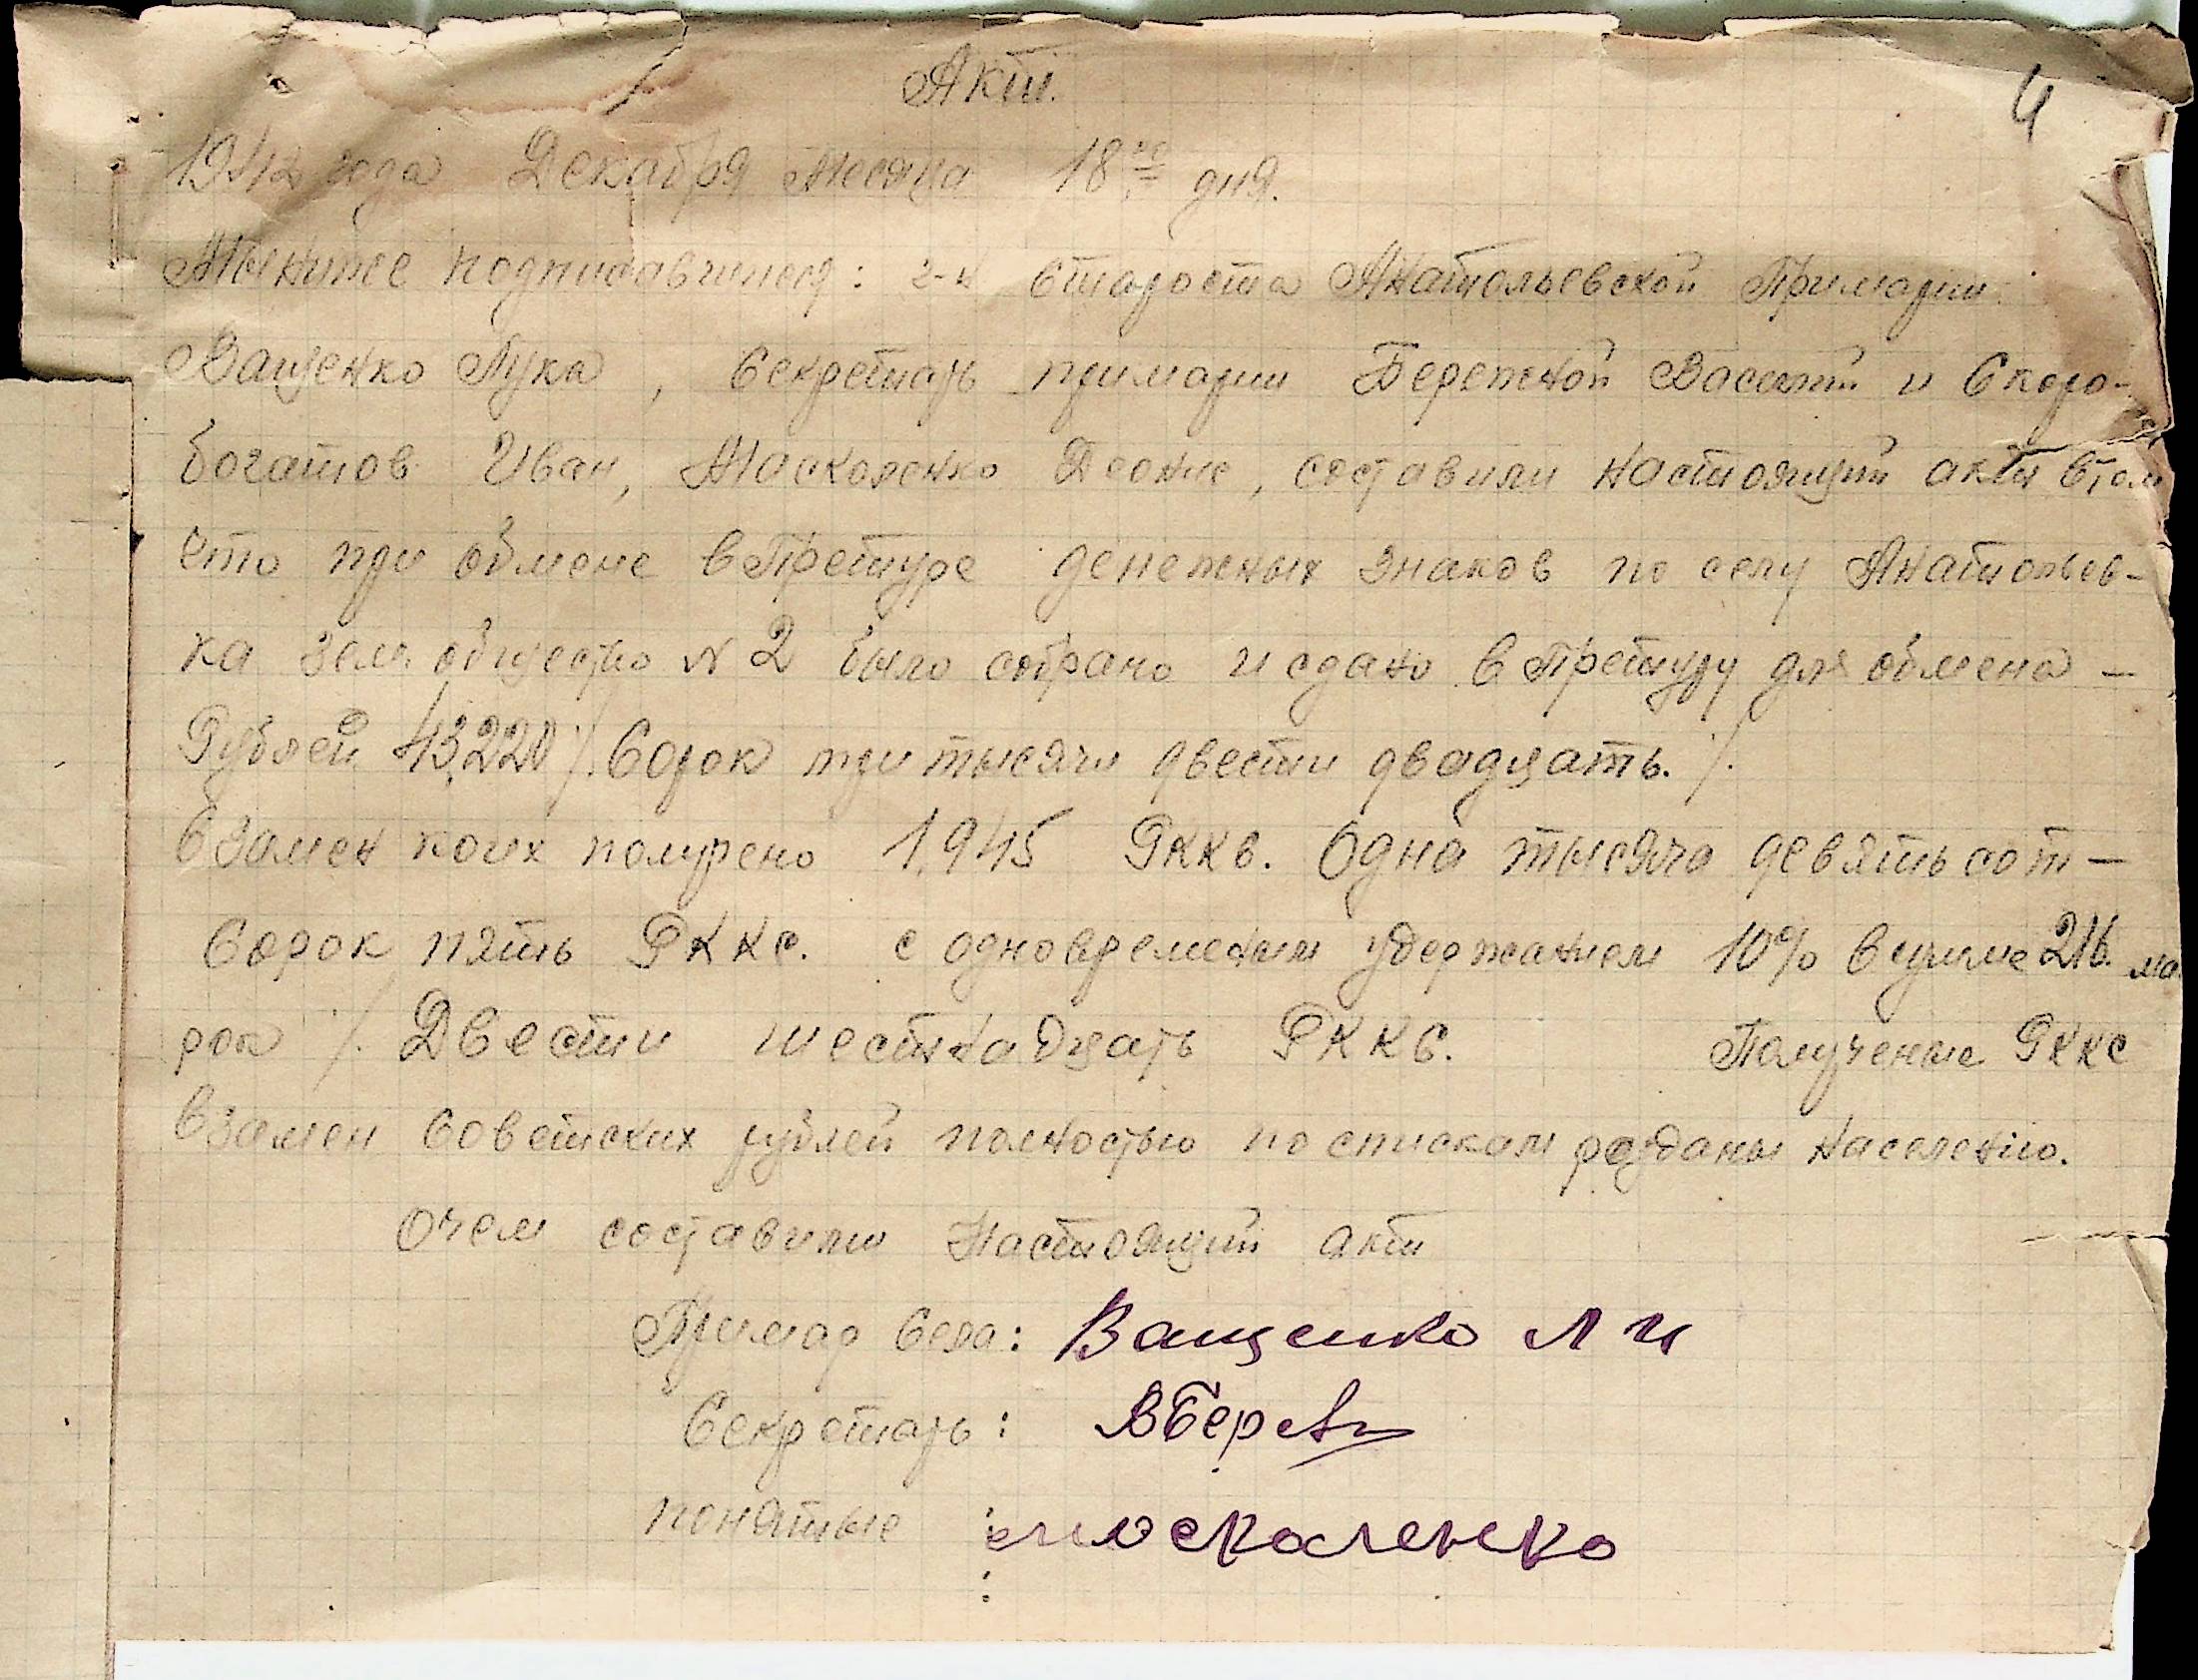 Актъ.
4
1942 года Декабря месяца 18го дня.
Мы ниже подписавшиеся: г-н Староста Анатольевской Примарии
Ващенко Лука, Секретарь примарии Бережной Василий и Скоро-
богатов Иван, Москаленко Леоние, составили настоящий актъ втом
что при обмене в Претуре денежных знаков по селу Анатольев-
ка зем. общество N 2 было собрано и сдано в Претуру для обмена —
Рублей 43,220 /. Сорок три тысячи двести двадцать. /.
Взамен коих получено 1.945 Рккс. Одна тысяча девятьсот —
Сорок пять Рккс. с одновременным удержанием 10% в сумме 216. ма
рок /. Двести шестнадцать Рккс. Полученые Рккс
взамен Советских рублей полностью по спискам розданы населению.
Очем составили Настоящий актъ
Примар Села: Ващенко Л И
Секретарь: В Береж
понятые : москаленко